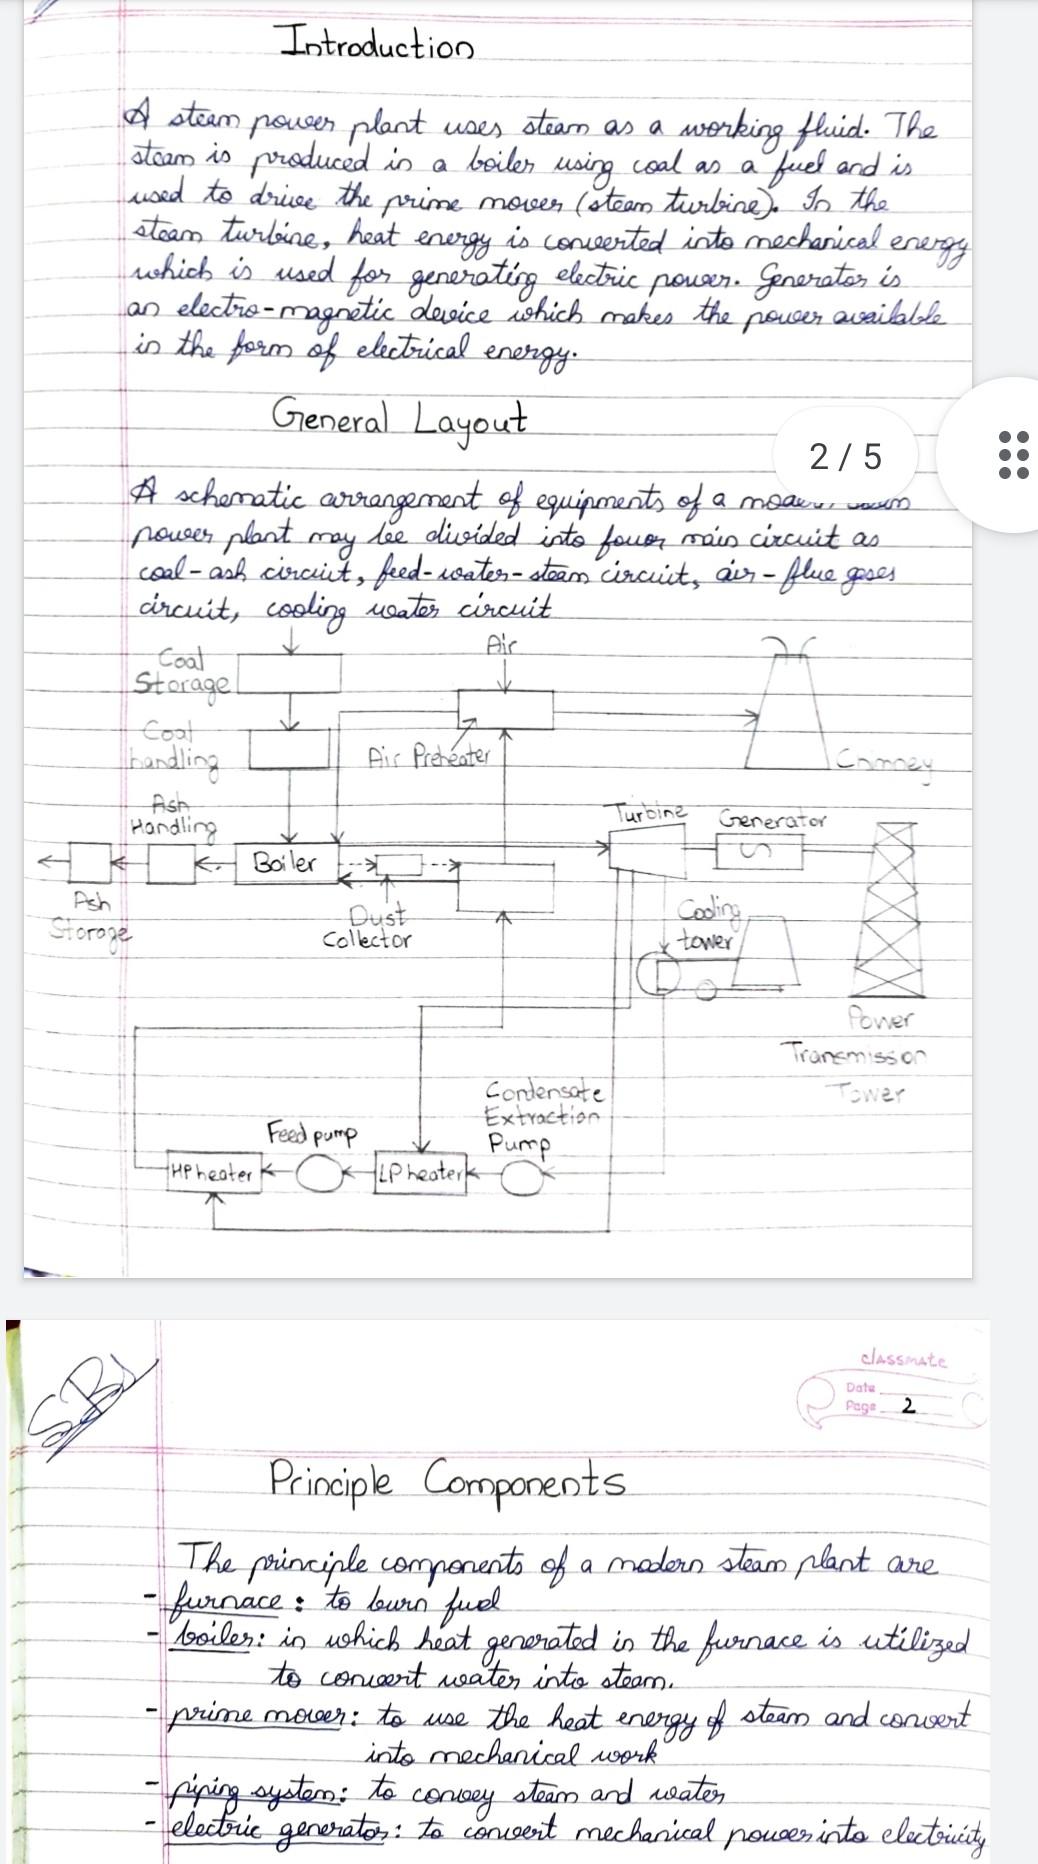 Introduction
A steam power plant uses steam as a working fluid. The
steam is produced in a boiler using coal as a fuel and is
used to drive the prime mover (steam turbine). In the
steam turbine, heat energy is converted into mechanical energy
which is used for generating electric power. Generator is
an electro-magnetic device which makes the power available
in the form of electrical energy.
General Layout
2 / 5
A schematic arrangement of equipments of a
power plant may be divided into four main circuit as
coal-ash circuit, feed-water-steam circuit, air-flue gases
circuit, cooling water circuit
Coal
Storage
Air
Coal
handling
Air Preheater
Chimney
Ash
Handling
Turbine
Generator
Boiler
Ash
Storage
Dust
Collector
Cooling
tower
Power
Transmission
Tower
Condensate
Extraction
Pump
Feed pump
HP heater
LP heater
classmate
Date
Page 2
Principle Components
The principle components of a modern steam plant are
- furnace: to burn fuel
- boiler: in which heat generated in the furnace is utilized
to convert water into steam.
- prime mover: to use the heat energy of steam and convert
into mechanical work
- piping system: to convey steam and water
- electric generator: to convert mechanical power into electricity